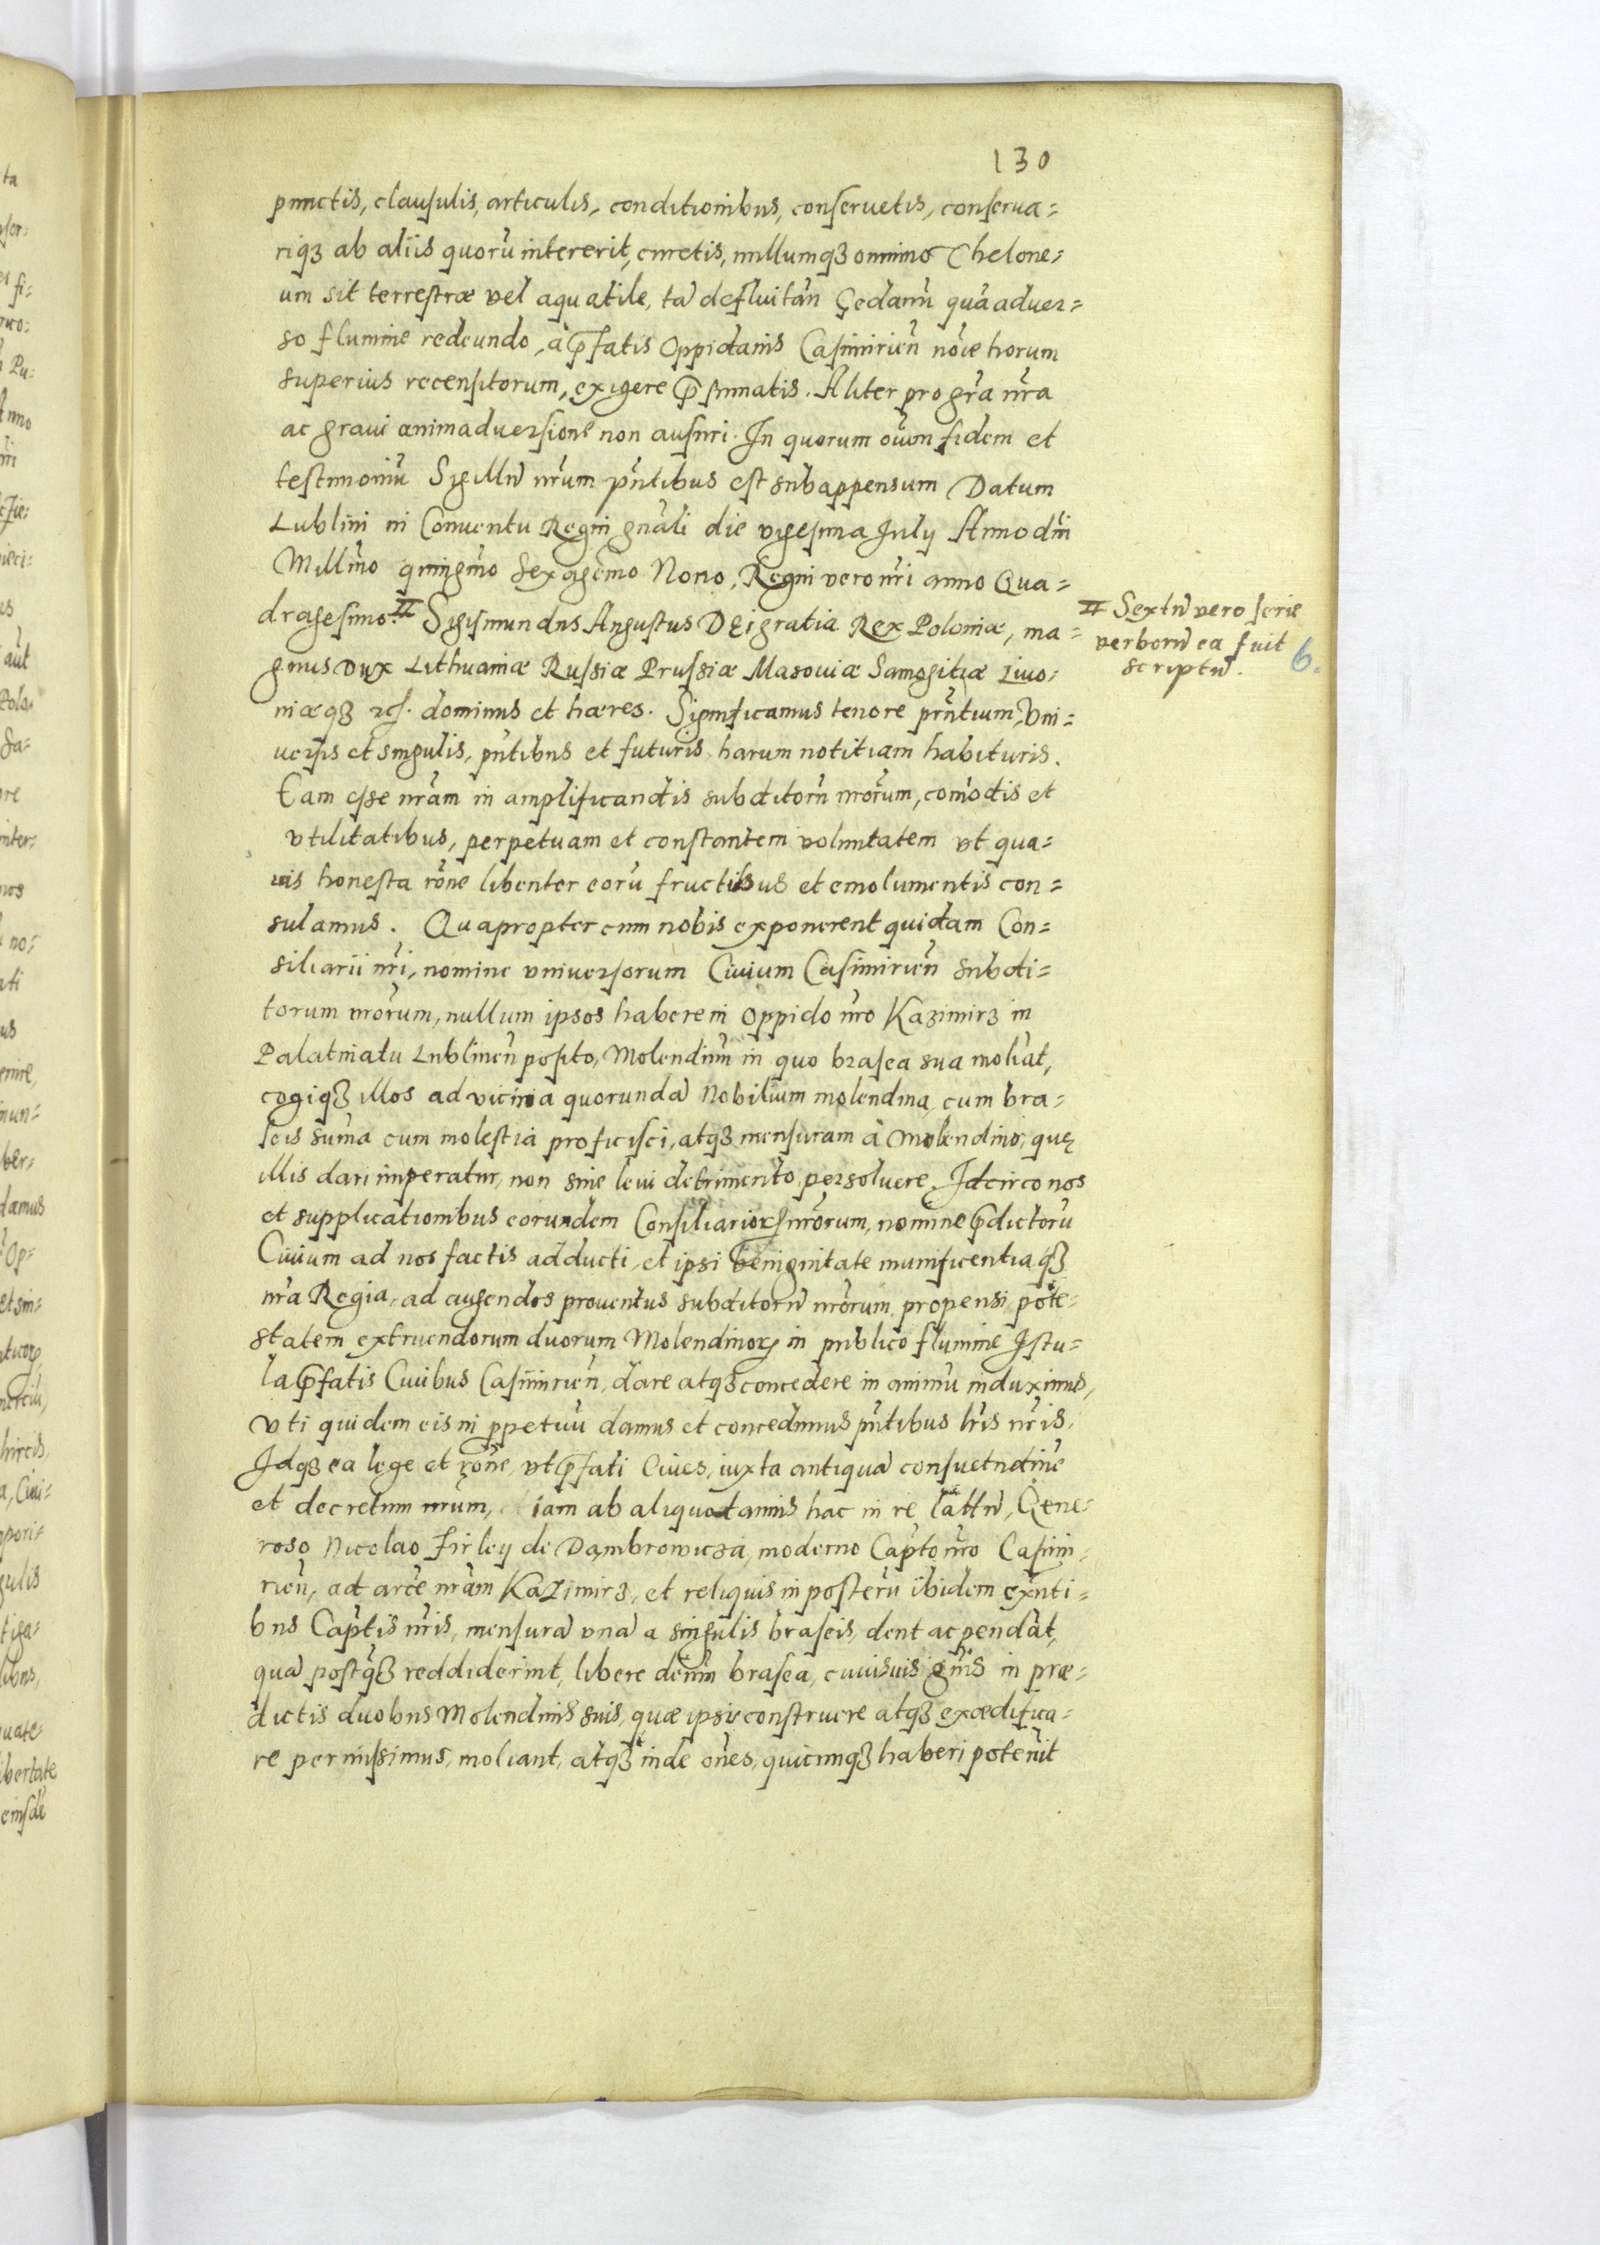 130
punctis, clausulis, articulis, conditionibus, conseruetis, conserua=
riqꝫ ab aliis quorū intererit, curetis, nullumqꝫ omnino Thelone=
um sit terrestræ vel aquatile, tā defluitañ Gedanū quā aduer=
so flumine redeundo, à p̄fatis Oppidanis Casimirieñ noīe horum
superius recensitorum, exigere p̄sumatis. Aliter pro gr̃a nr̃a
ac graui animaduersione non ausuri. In quorum oīum fidem et
testimoniū Sigillū nr̃um pn̄tibus est subappensum Datum
Lublini in Conuentu Regni gn̄ali die vigesima July Anno dn̄i
Millm̄o qningm̄o Sexagēmo Nono, Regni vero nr̃i anno Qua=
dragesimo. # Sigismundus Augustus Dei gratia Rex Poloniæ, ma=
gnus Dux Lithuaniæ Russiæ Prussiæ Masouiæ Samogitiæ Liuo=
niæqꝫ etc. dominus et hæres. Significamus tenore pn̄tium, Vni=
uersis et singulis, pn̄tibus et futuris harum notitiam habituris.
Eam esse nr̃am in amplificandis subditorū nr̃orum, com̄odis et
vtilitatibus, perpetuam et constantem voluntatem vt qua=
uis honesta rōne libenter eorū fructibus et emolumentis con=
sulamus. Quapropter cum nobis exponerent quidam Con=
siliarii nr̃i, nomine vniuersorum Ciuium Casimirieñ subdi=
torum nr̃orum, nullum ipsos habere in oppido nr̃o Kazimirz in
Palatinatu Lublineñ posito, Molendinū in quo brasea sua moliāt,
cogiqꝫ illos ad vicinia quorundā Nobilium molendina, cum bra=
seis sum̄a cum molestia proficisci, atqꝫ mensuram à Molendino, quę
illis dari imperatur, non sine leui detrimento persoluere. Idcirco nos
et supplicationibus eorundem Consiliarioꝝ nr̃orum, nomine p̄dictorū
Ciuium ad nos factis adducti, et ipsi benignitate munificentiaqꝫ
nr̃a Regia, ad augendos prouentus subditorū nr̃orum propensi, pote=
statem extruendorum duorum Molendinoꝝ in publico flumine Istu=
la p̄fatis Ciuibus Casimirieñ, dare atqꝫ concedere in animū induximus,
vti quidem eis in ꝑpetuū damus et concedimus pn̄tibus lr̃is nr̃is.
Idqꝫ ea lege et rōne, vt p̄fati Ciues, iuxta antiquā consuetudinē
et decretum nr̃um, iam ab aliquot annis hac in re lattū, Gene=
roso Nicolao Firley de Dąmbrowicza, moderno Capto nr̃o Casimi=
rieñ, ad arcē nr̃am Kazimirz, et reliquis in posterū ibidem exn̄ti=
bus Captis nr̃is, mensurā vnā a singulis braseis, dent ac pendāt,
quā postqꝫ reddiderint, libere demū brasea, cuiusuis gn̄is in præ=
dictis duobus Molendinis suis, quæ ipsis construere atqꝫ exædifica=
re permisimus, moliant, atqꝫ inde oēs, quicunqꝫ haberi poterūt
# Sextū vero serie
verborū ea fuit
scriptū.
6.